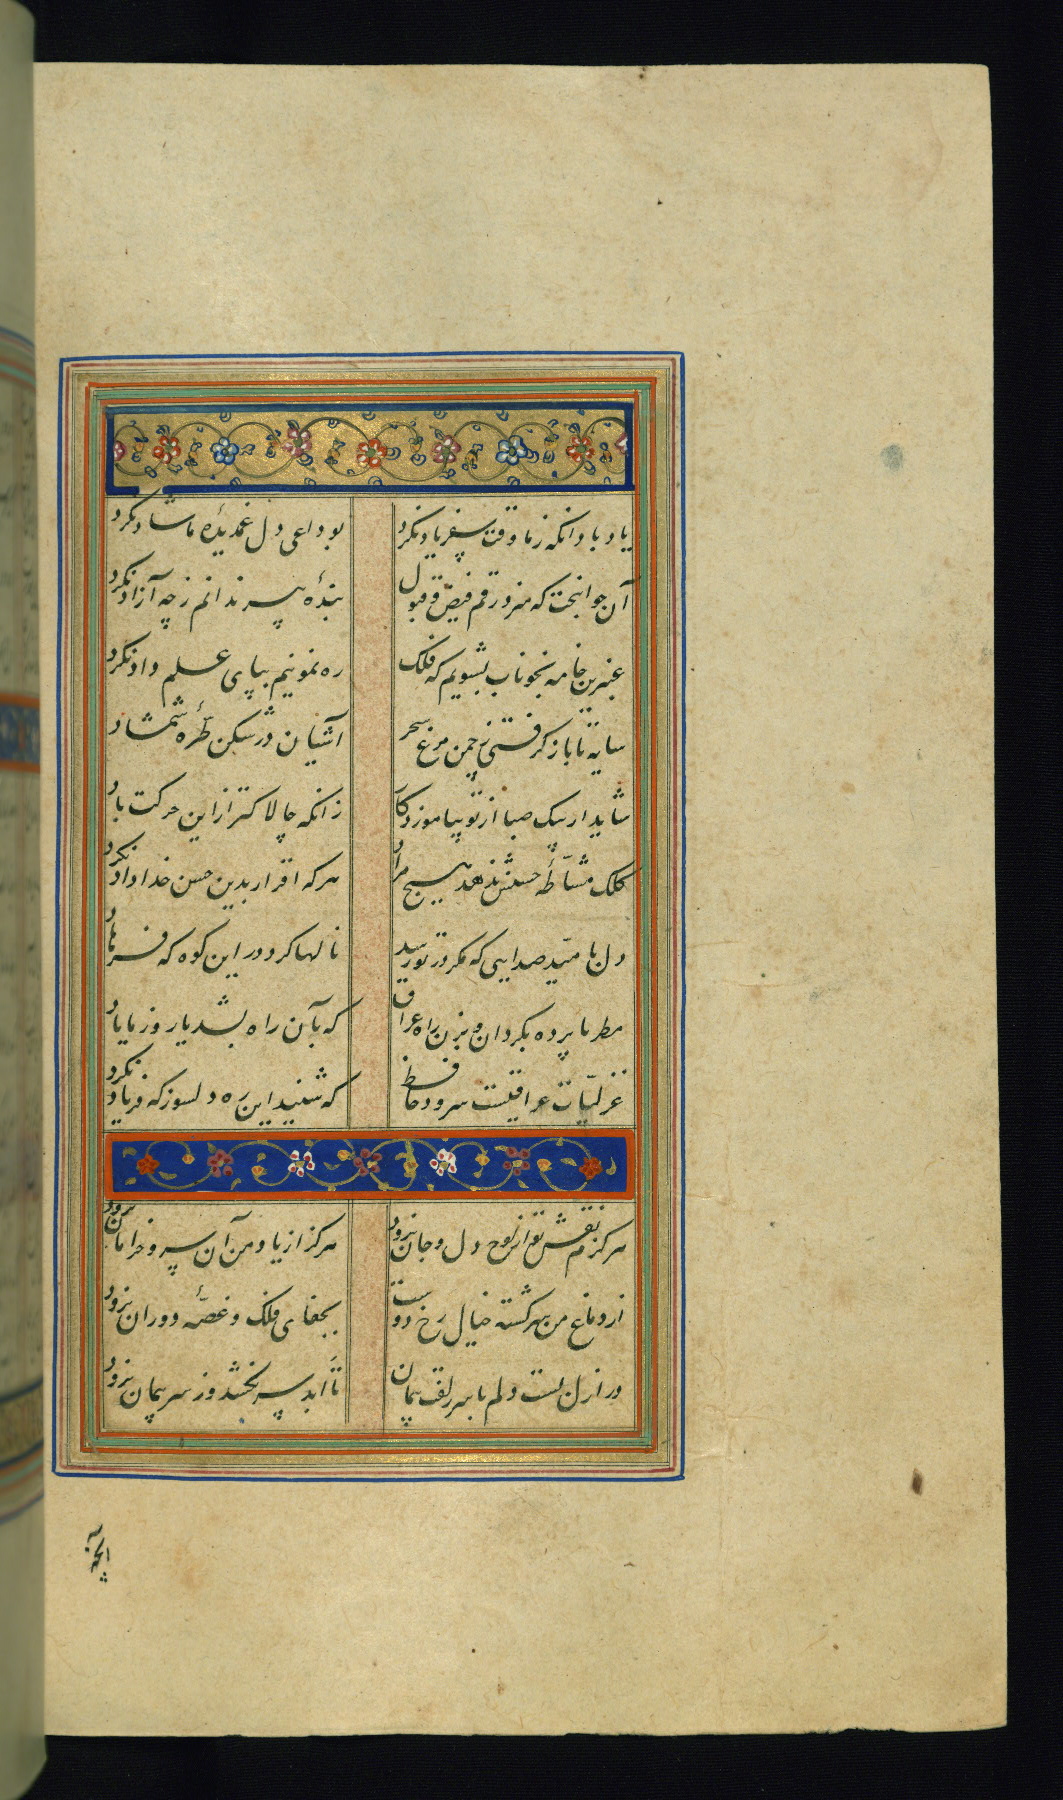 یاد باد انکه ز ما وقت سفر یاد نکرد
بوداعی دل غمدیدهٔ ما شاد نکرد
آن جوانبخت که میزد رقم فیض و قبول
بندهٔ پیر ندانم ز چه آزاد نکرد
عنبرین جامه بخوناب بشویم که فلک
ره نمونیم بپای علم داد نکرد
سایه تا باز کرفتی ز چمن مرغ سحر
آشیان در شکن طرهٔ شمشاد
شاید ار پیک صبا از تو بیاموزد کار
زانکه چالاکتر از این حرکت باد
کلک مشاطهٔ حسنش ندهد هیچ مراد
هر که اقرار بدین حسن خداداد نکرد
دل بامید صدایی که مکر در تو رسد
نالها کرد در این کوه که فرهاد
مطربا پرده بکردان و بزن راه عراق
که بآن راه بشد یار و ز ما یاد
غزلیات عراقیست سرود حافظ
که شنید این ره دلسوز که فریاد نکرد
هرکزم نقش تو از لوح دل و جان نرود
هرکز از یاد من آن سرو خرامان نرود
از دماغ من سرکشته خیال رخ دوست
بجفای فلک و غصهٔ دوران نرود
در ازل بست دلم با سر زلفت پیمان
تا ابد سر نکشد وز سر پیمان نرود